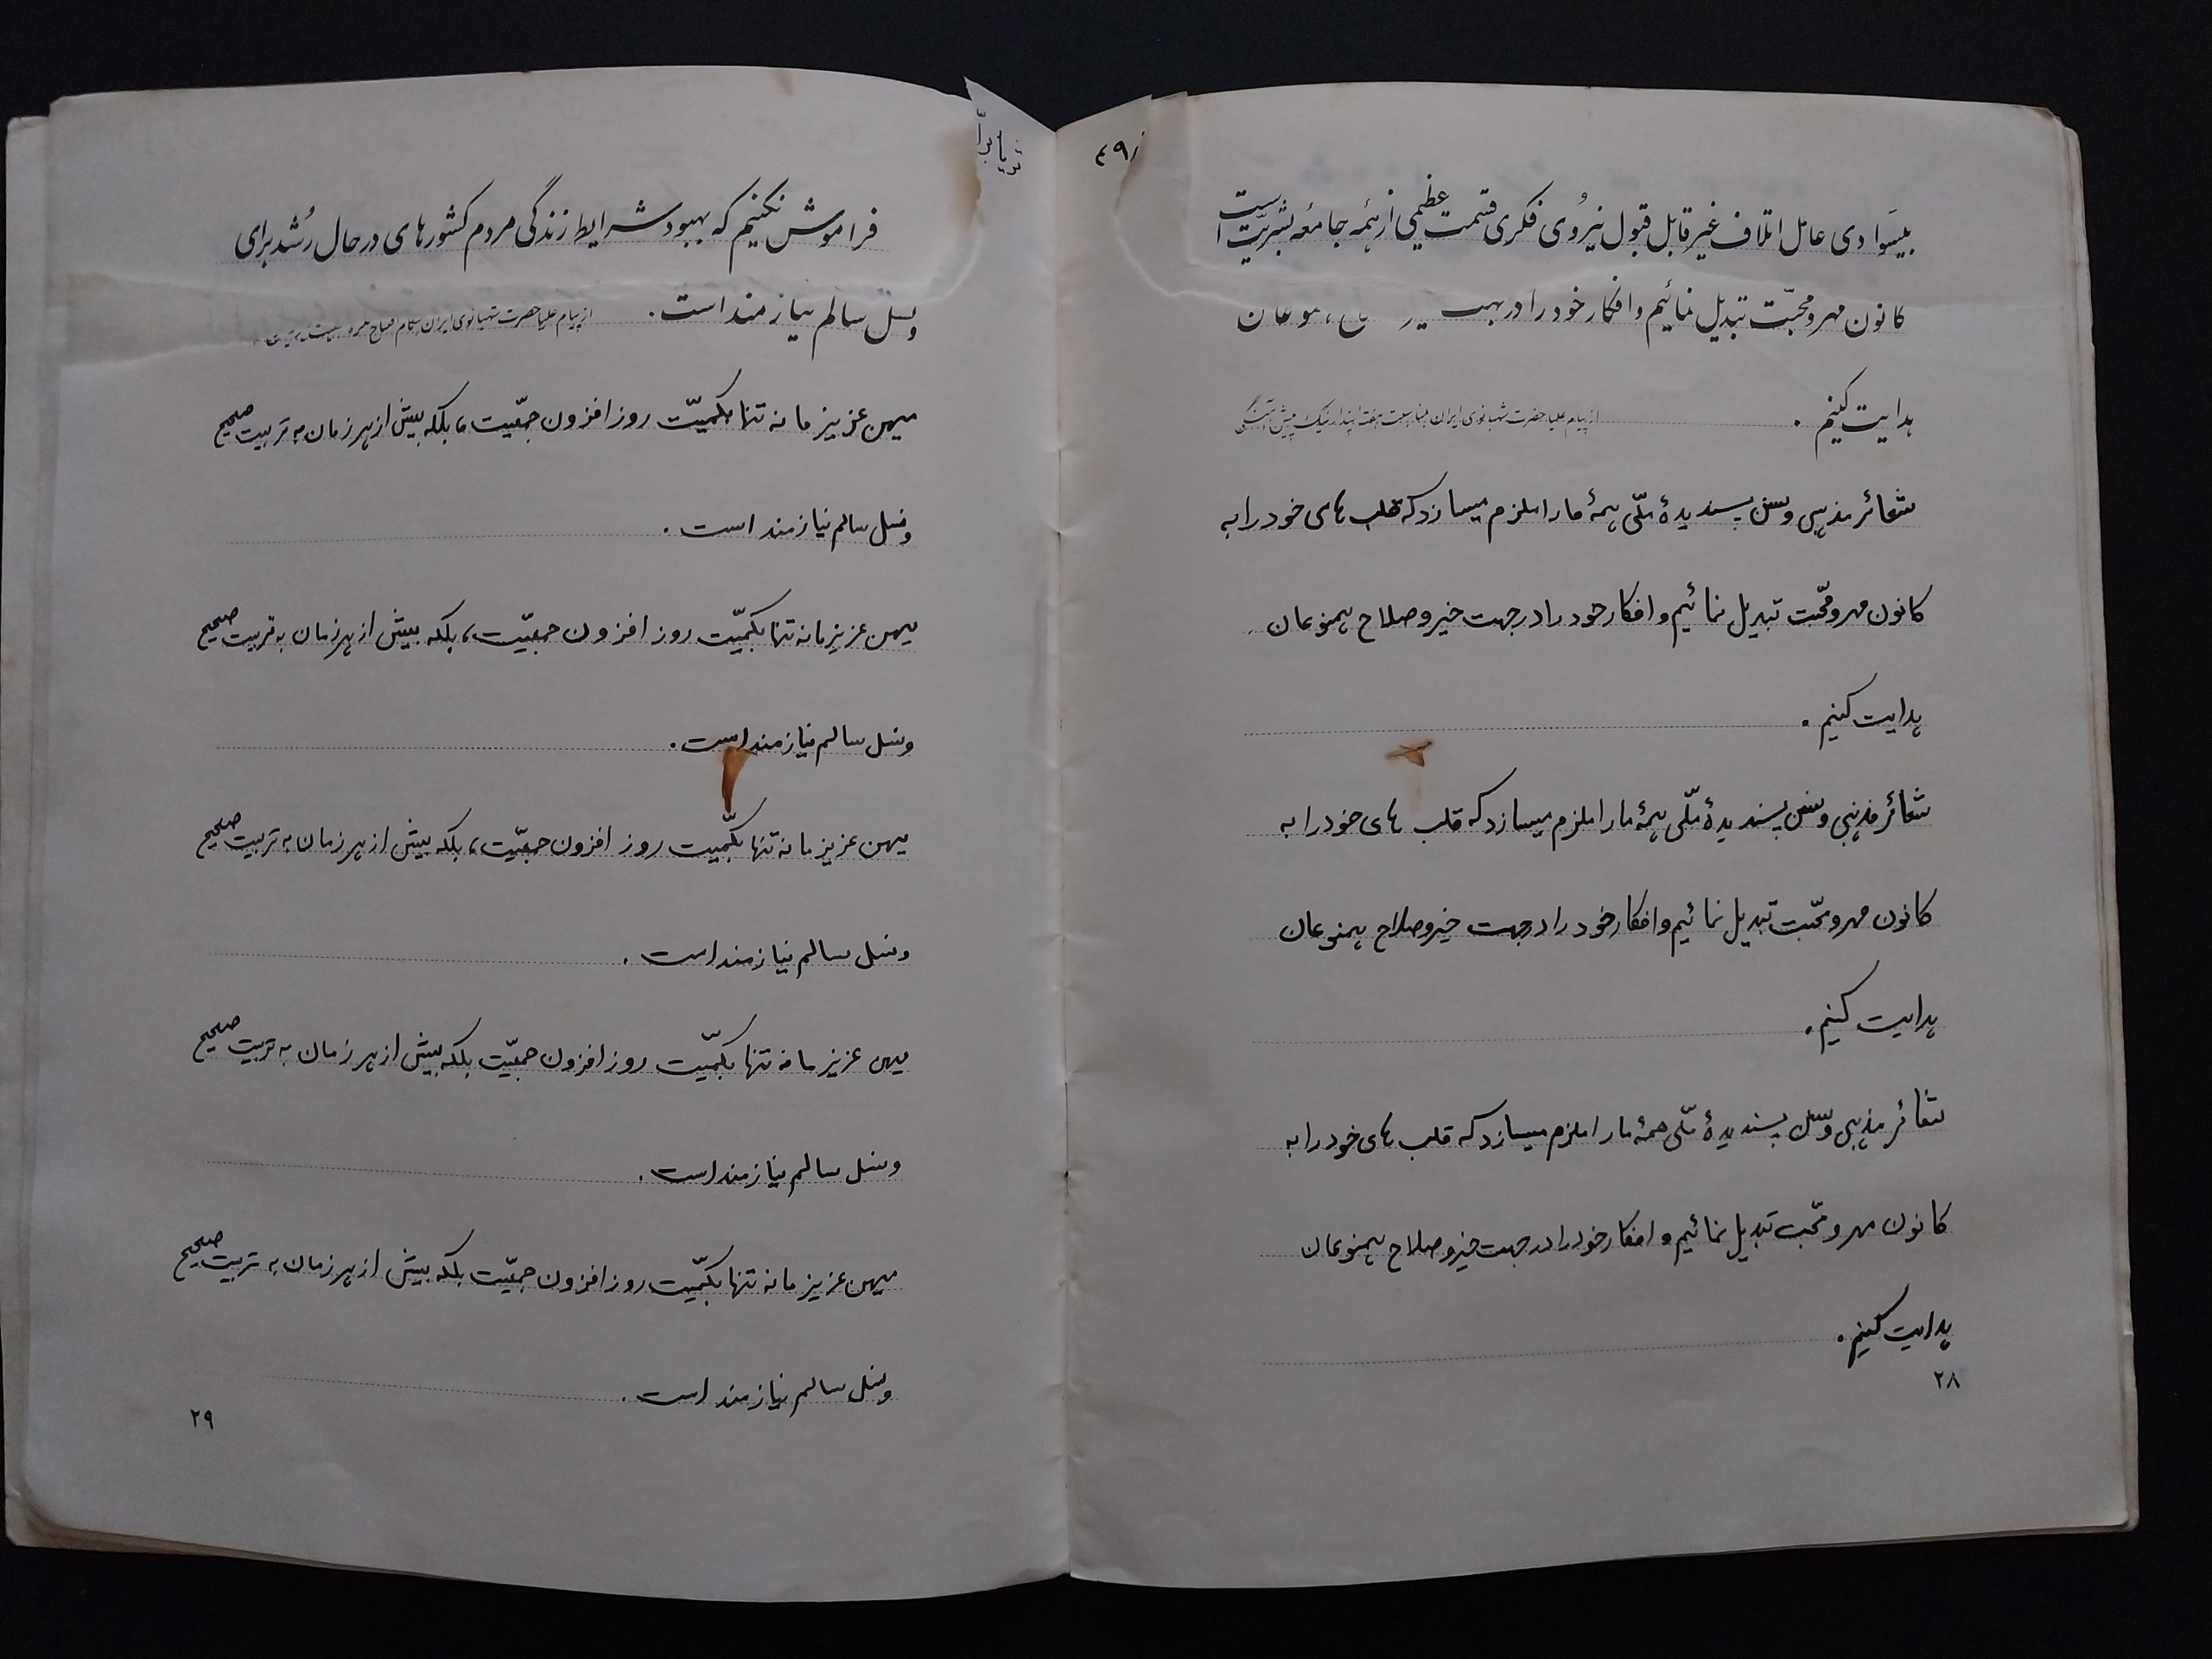 بیسَوادی عامل اتلاف غیر قابل قبول نیرُوی فکری قسمت عظیمی از همهٔ جامعه بشریّت است
کانون مهر و محبّت تبدیل نمائیم و افکار خود را در
هدایت کنیم .
از پیام علیاحضرت شهبانوی ایران بمناسبت هفته پیشآهنگی
شعائر مذهبی و سنن پسندیدهٔ ملّی همهٔ ما را ملزم میسازد که قلب های خود را به
کانون مهر و محّبت تبدیل نمائیم و افکار خود را در جهت خیر و صلاح همنوعان
هدایت کنیم .
شعائر مذهبی و سنن پسندیدهٔ ملّی همهٔ ما را ملزم میسازد که قلب های خود را به
کانون مهر و محّبت تبدیل نمائیم و افکار خود را در جهت خیر و صلاح همنوعان
هدایت کنیم .
شعائر مذهبی و سنن پسندیدهٔ ملّی همهٔ ما را ملزم میسازد که قلب های خود را به
کانون مهر و محّبت تبدیل نمائیم و افکار خود را در جهت خیر و صلاح همنوعان
هدایت کنیم .
۲۸
فراموش نکنیم که بهبود شرایط زندگی مردم کشورهای در حال رُشد برای
و نسل سالم نیازمند است .
از پیام علیاحضرت شهبانوی ایران بهنگام افتتاح
میهن عزیز ما نه تنها بکمیّت روز افزون جمعّیت، بلکه بیش از هر زمان به تربیت صحیح
و نسل سالم نیازمند است .
میهن عزیز ما نه تنها بکمیّت روز افزون جمعّیت، بلکه بیش از هر زمان به تربیت صحیح
و نسل سالم نیازمند است .
میهن عزیز ما نه تنها بکّمیت روز افزون جمعّیت، بلکه بیش از هر زمان به تربیت صحیح
و نسل سالم نیازمند است .
میهن عزیز ما نه تنها بکمّیت روز افزون جمعّیت بلکه بیش از هر زمان به تربیت صحیح
و نسل سالم نیازمند است .
میهن عزیز ما نه تنها بکمّیت روز افزون جمعّیت بلکه بیش از هر زمان به تربیت صحیح
و نسل سالم نیازمند است .
۲۹